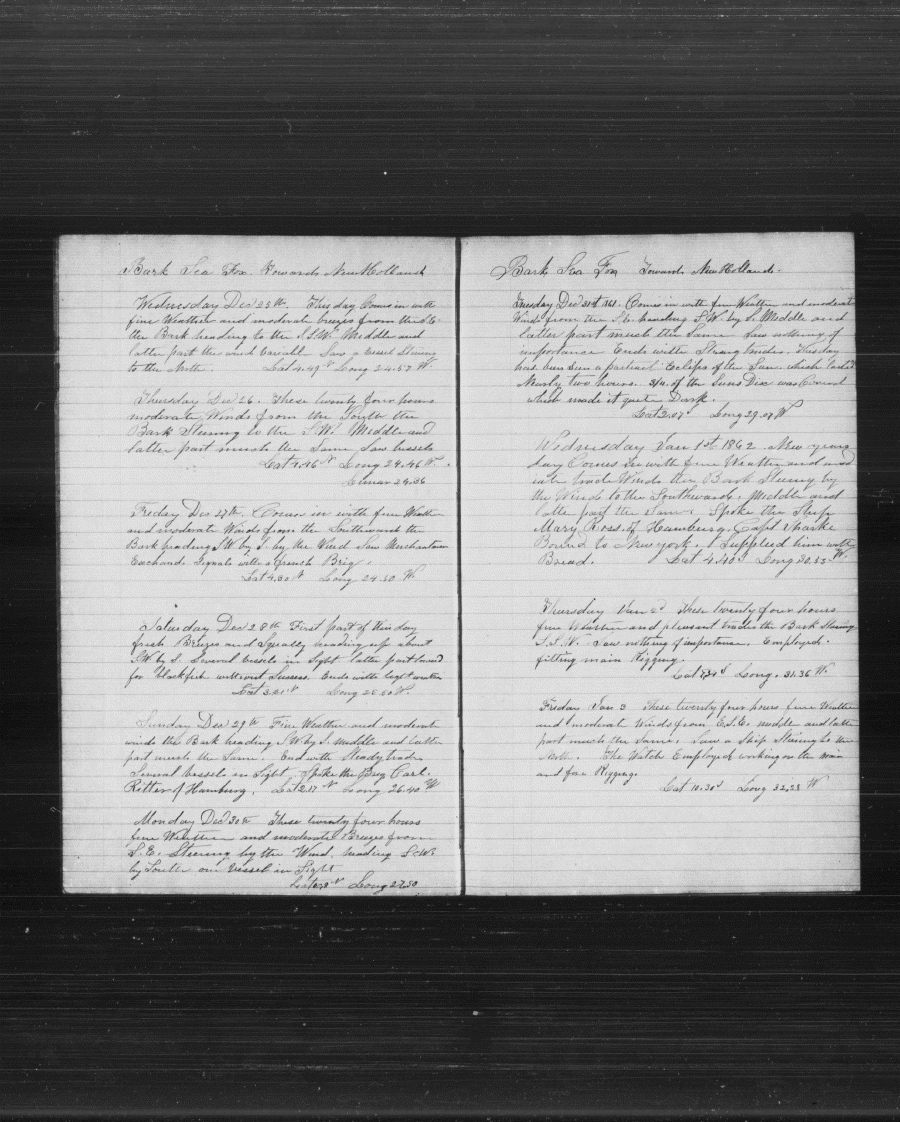 Bark Sea Fox Towards New Holland
Wednesday Dec 25th. This day Comes in with
fine Weather and moderate breezes from the S.E.
the Bark heading to the S.S.W. Middle and
latter part the wind Varable. Saw a vessel Steering
to the North. Lat 4.49 N Long 24.57 W.
Thursday Dec 26. These twenty four hours
moderate Winds from the South the
Bark Steering to the S.W. Middle and
latter part much the Same Saw vessels
Lat 4.46 N Long 24.46 W.
24.36
Friday Dec 27th. Comes in with fine Weather
and moderate Winds from the Southward the
Bark heading S.W. by S. by the Wind Saw Merchantman
Exchand. Signals with a French Brig.
Lat 4.30 N Long 24.50 W.
Saturday Dec 28th First part of this day
fresh Breezes and Squally heading up about
S.W. by S. Several vessels in Sight latter part
for blackfish without Success. Ends with light
Lat 3.21 N Long W.
Sunday Dec 29th Fine Weather and moderate
winds the Bark heading S.W. by S. Middle and latter
part much the Same. End with Steady trades
Several vessels in Sight. Spoke the Brig Carl
Ritter of Hamburg. Lat 2.17 N Long 26.40 W
Monday Dec 30th These twenty four hours
fine Weather and moderate Breezes from
S.E. Steering by the Wind. heading S.W.
by South one vessel in Sight
Lat N Long 27.50
Bark Sea Fox Towards New Holland.
Tuesday Dec 31st 1861. Comes in with fine Weather and moderate
Wind from the S.E. heading S.W. by S. Middle and
latter part much the Same Saw nothing of
importance Ends with Strong trades. Tuesday
has been Seen a partial Eclips of the Sun. which lasted
Nearly two hours. 3/4 of the Suns Disc was Covered
which made it quite Dark.
Lat 2.07 Long 29.07 W
Wednesday Jan 1st 1862 New years
day Comes in with fine Weather and mod
erate trade Winds the Bark Steering by
the Winds to the Southward. Middle and
latter part the Same. Spoke the Ship
Mary Ross. of Hamburg. Capt
Bound to New york. I Supplied him with
Bread. Lat 4.40 S Long 30.55 W.
Thursday Jan 2 These twenty four hours
fine Weather and pleasant trades the Bark Steering
S.S.W. Saw nothing of importance. Employed.
fitting main Rigging.
Lat S Long. 31.36 W.
Friday Jan 3 These twenty four hours fine Weather
and moderate Winds from E.S.E. middle and latter
part much the Same. Saw a Ship Steering to the
North. The Watch Employed working on the main
and fore Rigging.
Lat 10.30 S Long 32.28 W